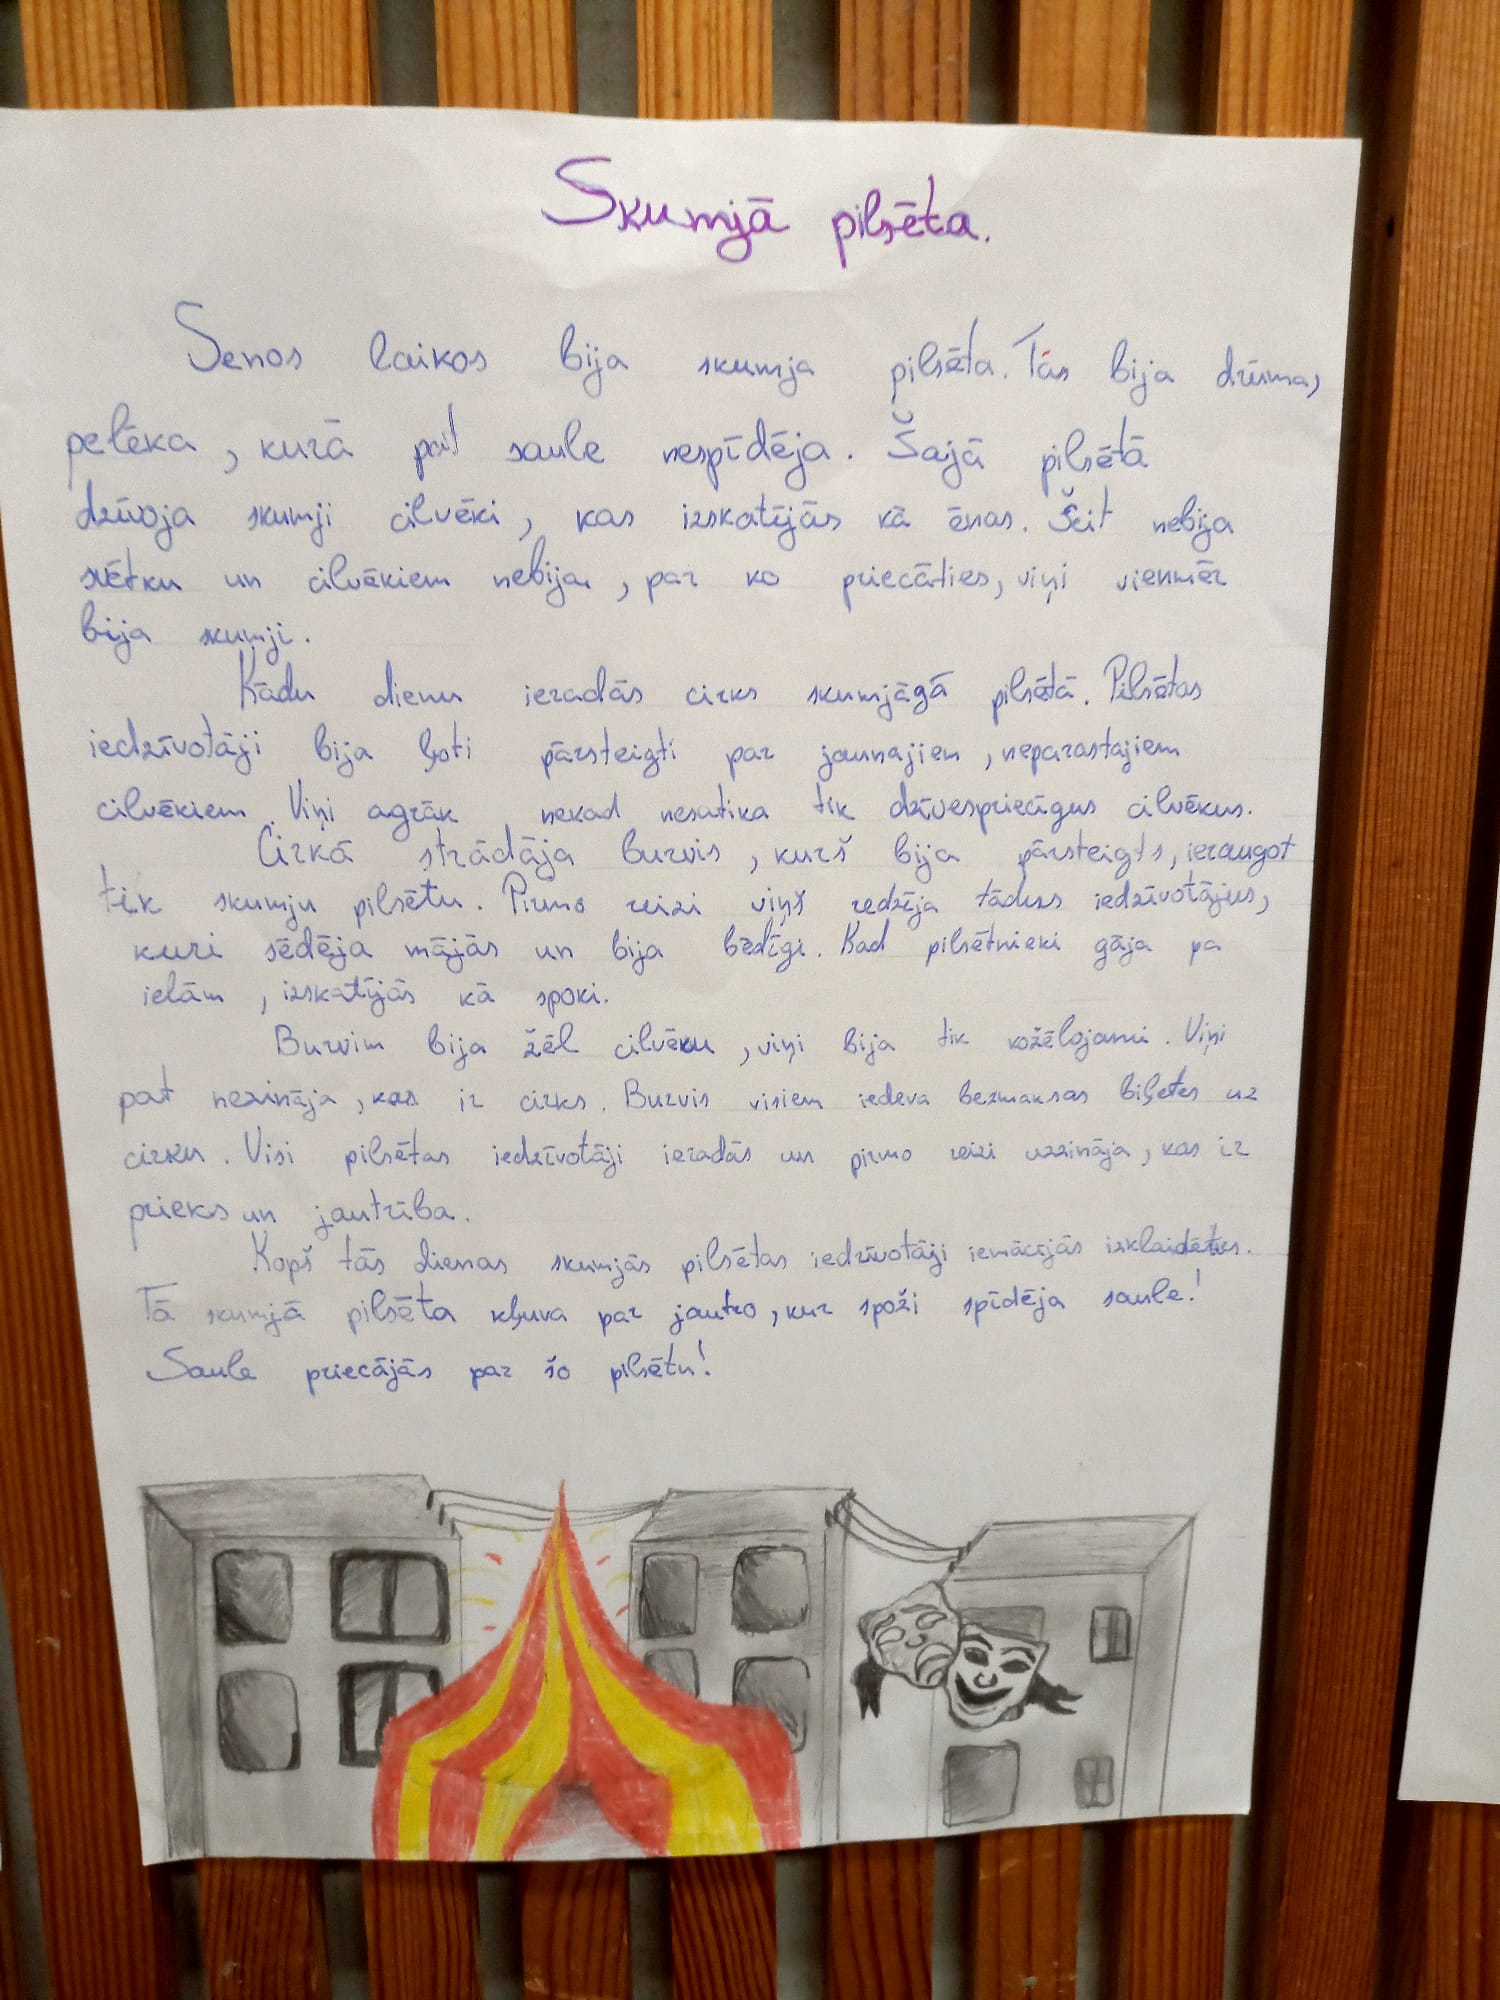 Skumjā pilsēta.
Senos laikos bija skumja pilsēta. Tās bija drūma,
pelēka, kurā pat saule nespīdēja. Šajā pilsētā
dzīvoja skumji cilvēki, kas izskatījās kā ēnas. Šeit nebija
svētku un cilvēkiem nebija, par ko priecāties, viņi vienmēr
bija skumji.
Kādu dienu ieradās cirks skumjāgā pilsētā. Pilsētas
iedzīvotāji bija ļoti pārsteigti par jaunajiem, neparastajiem
cilvēkiem. Viņi agrāk nekad nesatika tik dzīvespriecīgus cilvēkus.
Cirkā strādāja burvis, kurš bija pārsteigts, ieraugot
tik skumju pilsētu. Pirmo reizi viņš redzēja tādus iedzīvotājus,
kuri sēdēja mājās un bija bēdīgi. Kad pilsētnieki gāja pa
ielām, izskatījās kā spoki.
Burvim bija žēl cilvēku, viņi bija tik nožēlojami. Viņi
pat nezināja, kas ir cirks. Burvis visiem iedeva bezmaksas biļetes uz
cirku. Visi pilsētas iedzīvotāji ieradās un pirmo reizi uzzināja, kas ir
prieks un jautrība.
Kopš tās dienas skumjās pilsētas iedzīvotāji iemācījās izklaidēties.
Tā skumjā pilsēta kļuva par jautro, kur spoži spīdēja saule!
Saule priecājās par šo pilsētu!